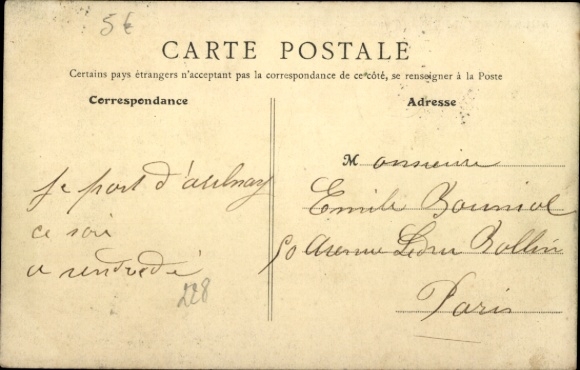 5€
CARTE POSTALE
Certains pays étrangers n'acceptant pas la correspondance de ce côté, se renseigner à la Poste
Correspondance
Adresse
je part d'aulnay
ce soir
a vendredi
228
Monsieur
Emile Bouniol
50 Avenue Ledru Rollin
Paris